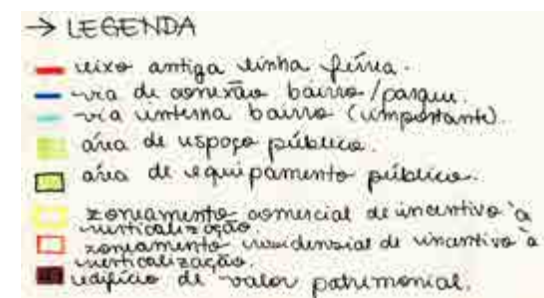 → LEGENDA
eixo antiga linha férrea.
via de conexão bairro/parque.
via interna bairro (importante).
área de espaço público.
área de equipamento público.
zoneamento comercial de incentivo à
verticalização.
zoneamento residencial de incentivo à
verticalização.
edifício de valor patrimonial.